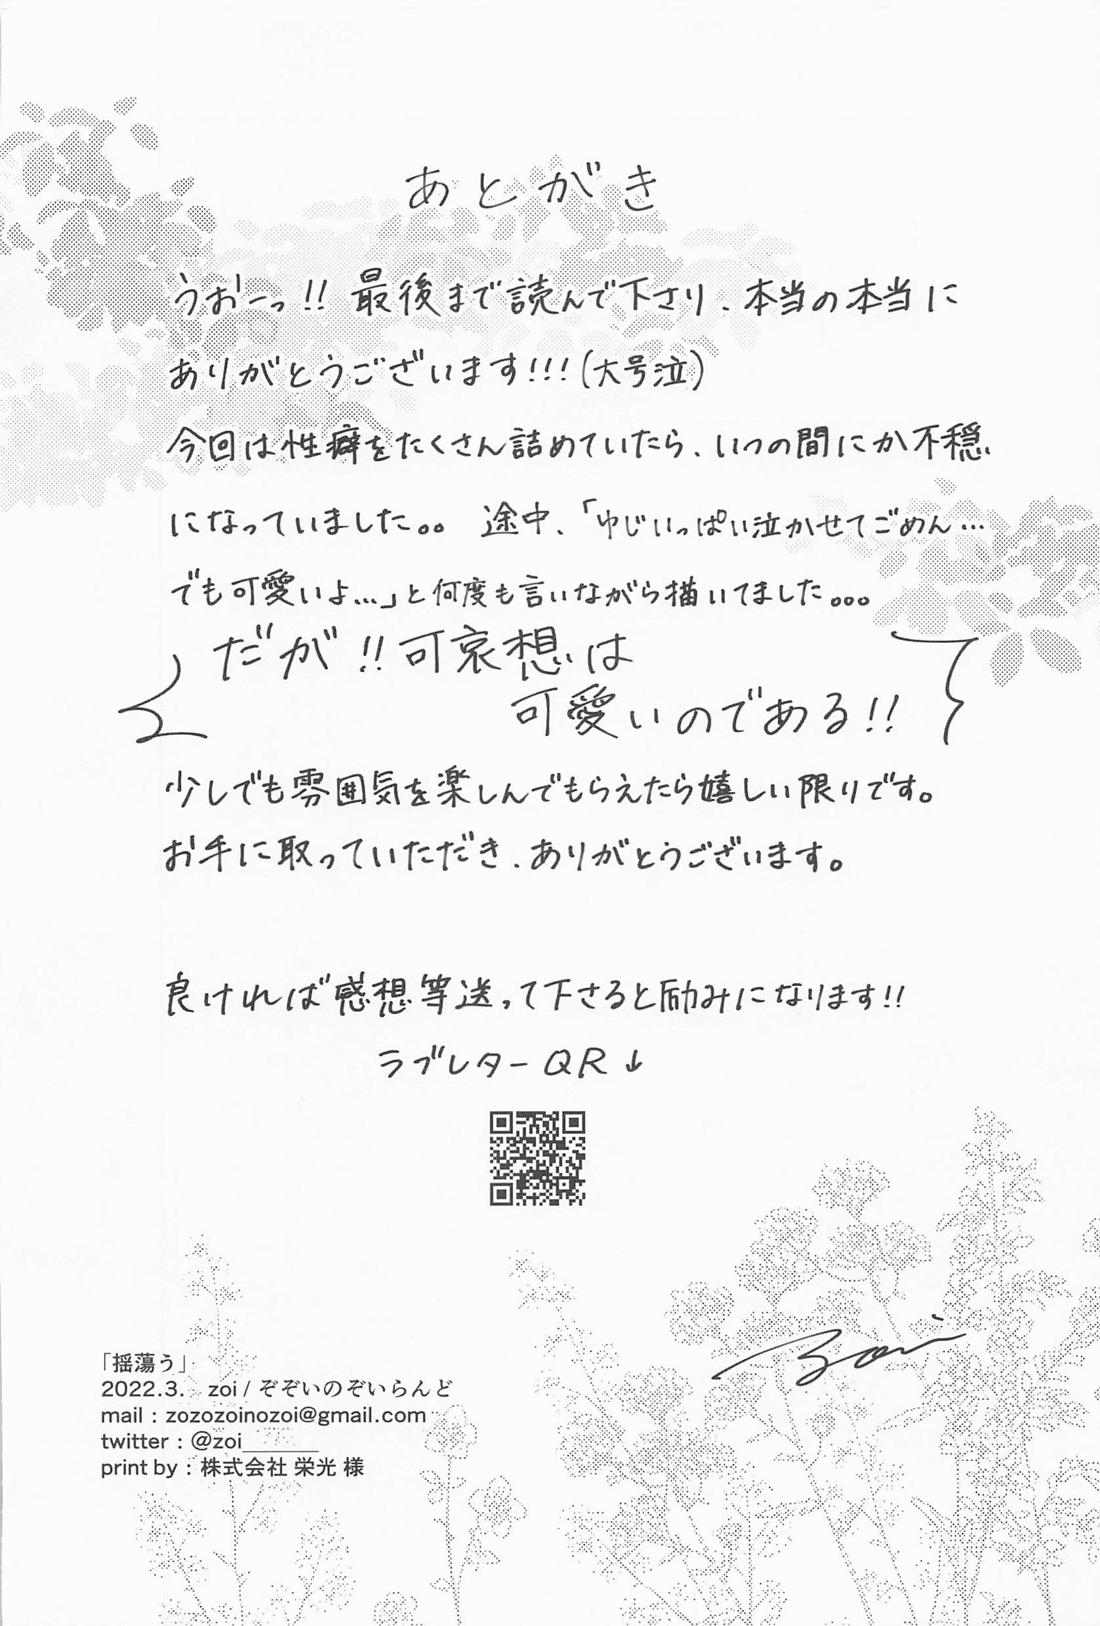 あとがき
うおーっ!! 最後まで読んで下さり、本当の本当に
ありがとうございます!!!(大号泣)
今回は性癖をたくさん詰めていたら、いつの間にか不穏
になっていました。。 途中、「ゆじいっぱい泣かせてごめん…
でも可愛いよ…」と何度も言いながら描いてました。。。
だが!!可哀想は
可愛いのである!!
少しでも雰囲気を楽しんでもらえたら嬉しい限りです。
お手に取っていただき、ありがとうございます。
良ければ感想等送って下さると励みになります!!
ラブレターQR↓
zoi
「揺蕩う」
2022.3. zoi / ぞぞいのぞいらんど
mail : zozozoinozoi@gmail.com
twitter : @zoi_______
print by : 株式会社 栄光 様